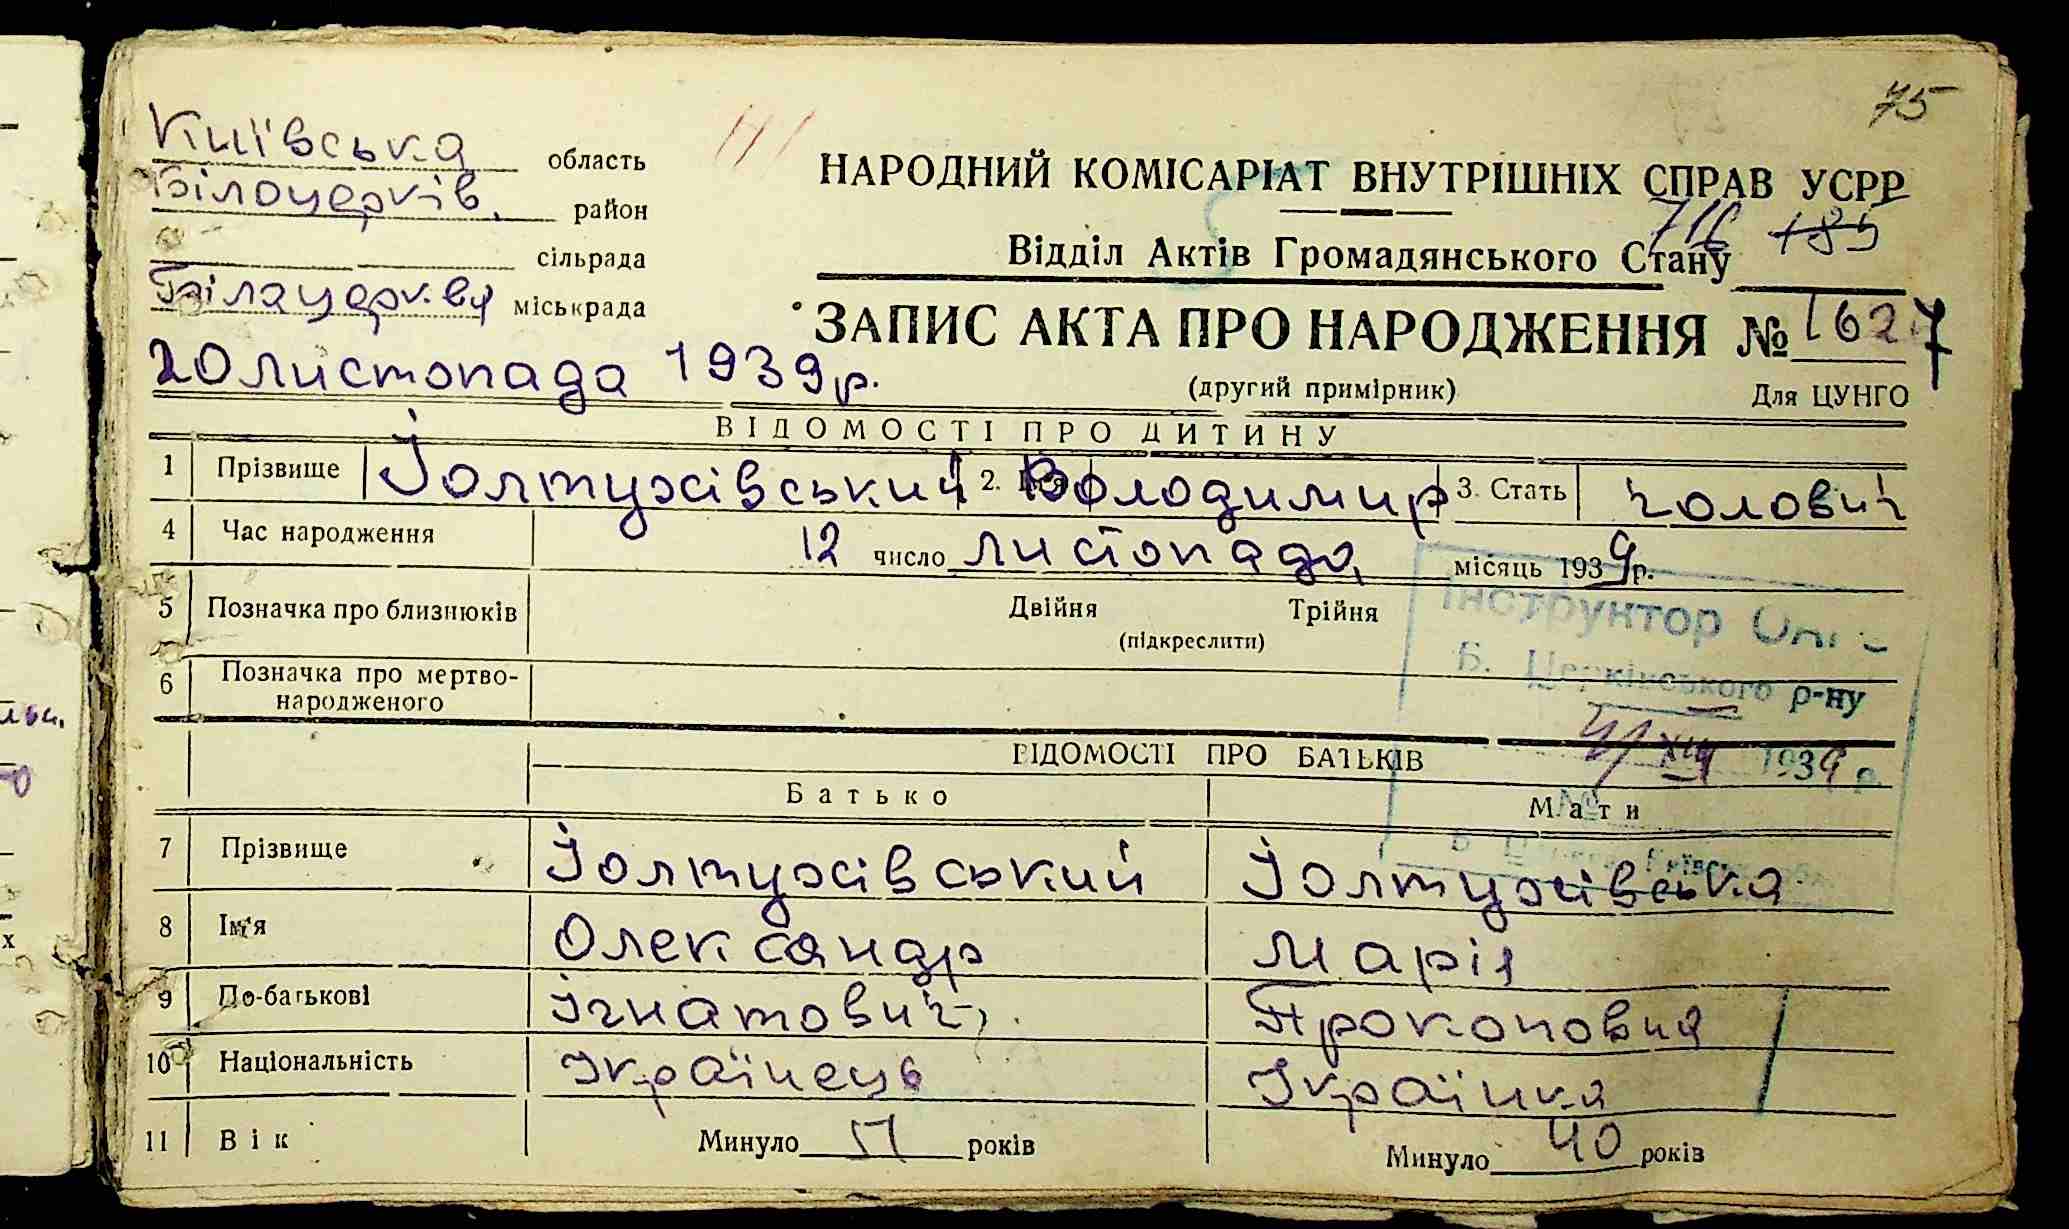 75
Київська область
Білоцерків. район
сільрада
Білацеркви міськрада
20 листопада 1939 р.
НАРОДНИЙ КОМІСАРІАТ ВНУТРІШНІХ СПРАВ УСРР
Відділ Актів Громадянського Стану
ЗАПИС АКТА ПРО НАРОДЖЕННЯ № 1627
(другий примірник) Для ЦУНГО
ВІДОМОСТІ ПРО ДИТИНУ
1 Прізвище Іолтухівський 2. Ім'я Володимир 3. Стать чолович
4 Час народження 12 число листопада місяць 1939 р.
5 Позначка про близнюків Двійня Трійня
(підкреслити)
6 Позначка про мертво-
народженого
Інструктор
Б. Церківського р-ну
1939 р.
ВІДОМОСТІ ПРО БАТЬКІВ
Батько Мати
7 Прізвище Іолтухівський Іолтухівська
8 Ім'я Олександр Марія
9 По-батькові Ігнатович Прокоповна
10 Національність Українець Українка
11 Вік Минуло 51 років Минуло 40 років